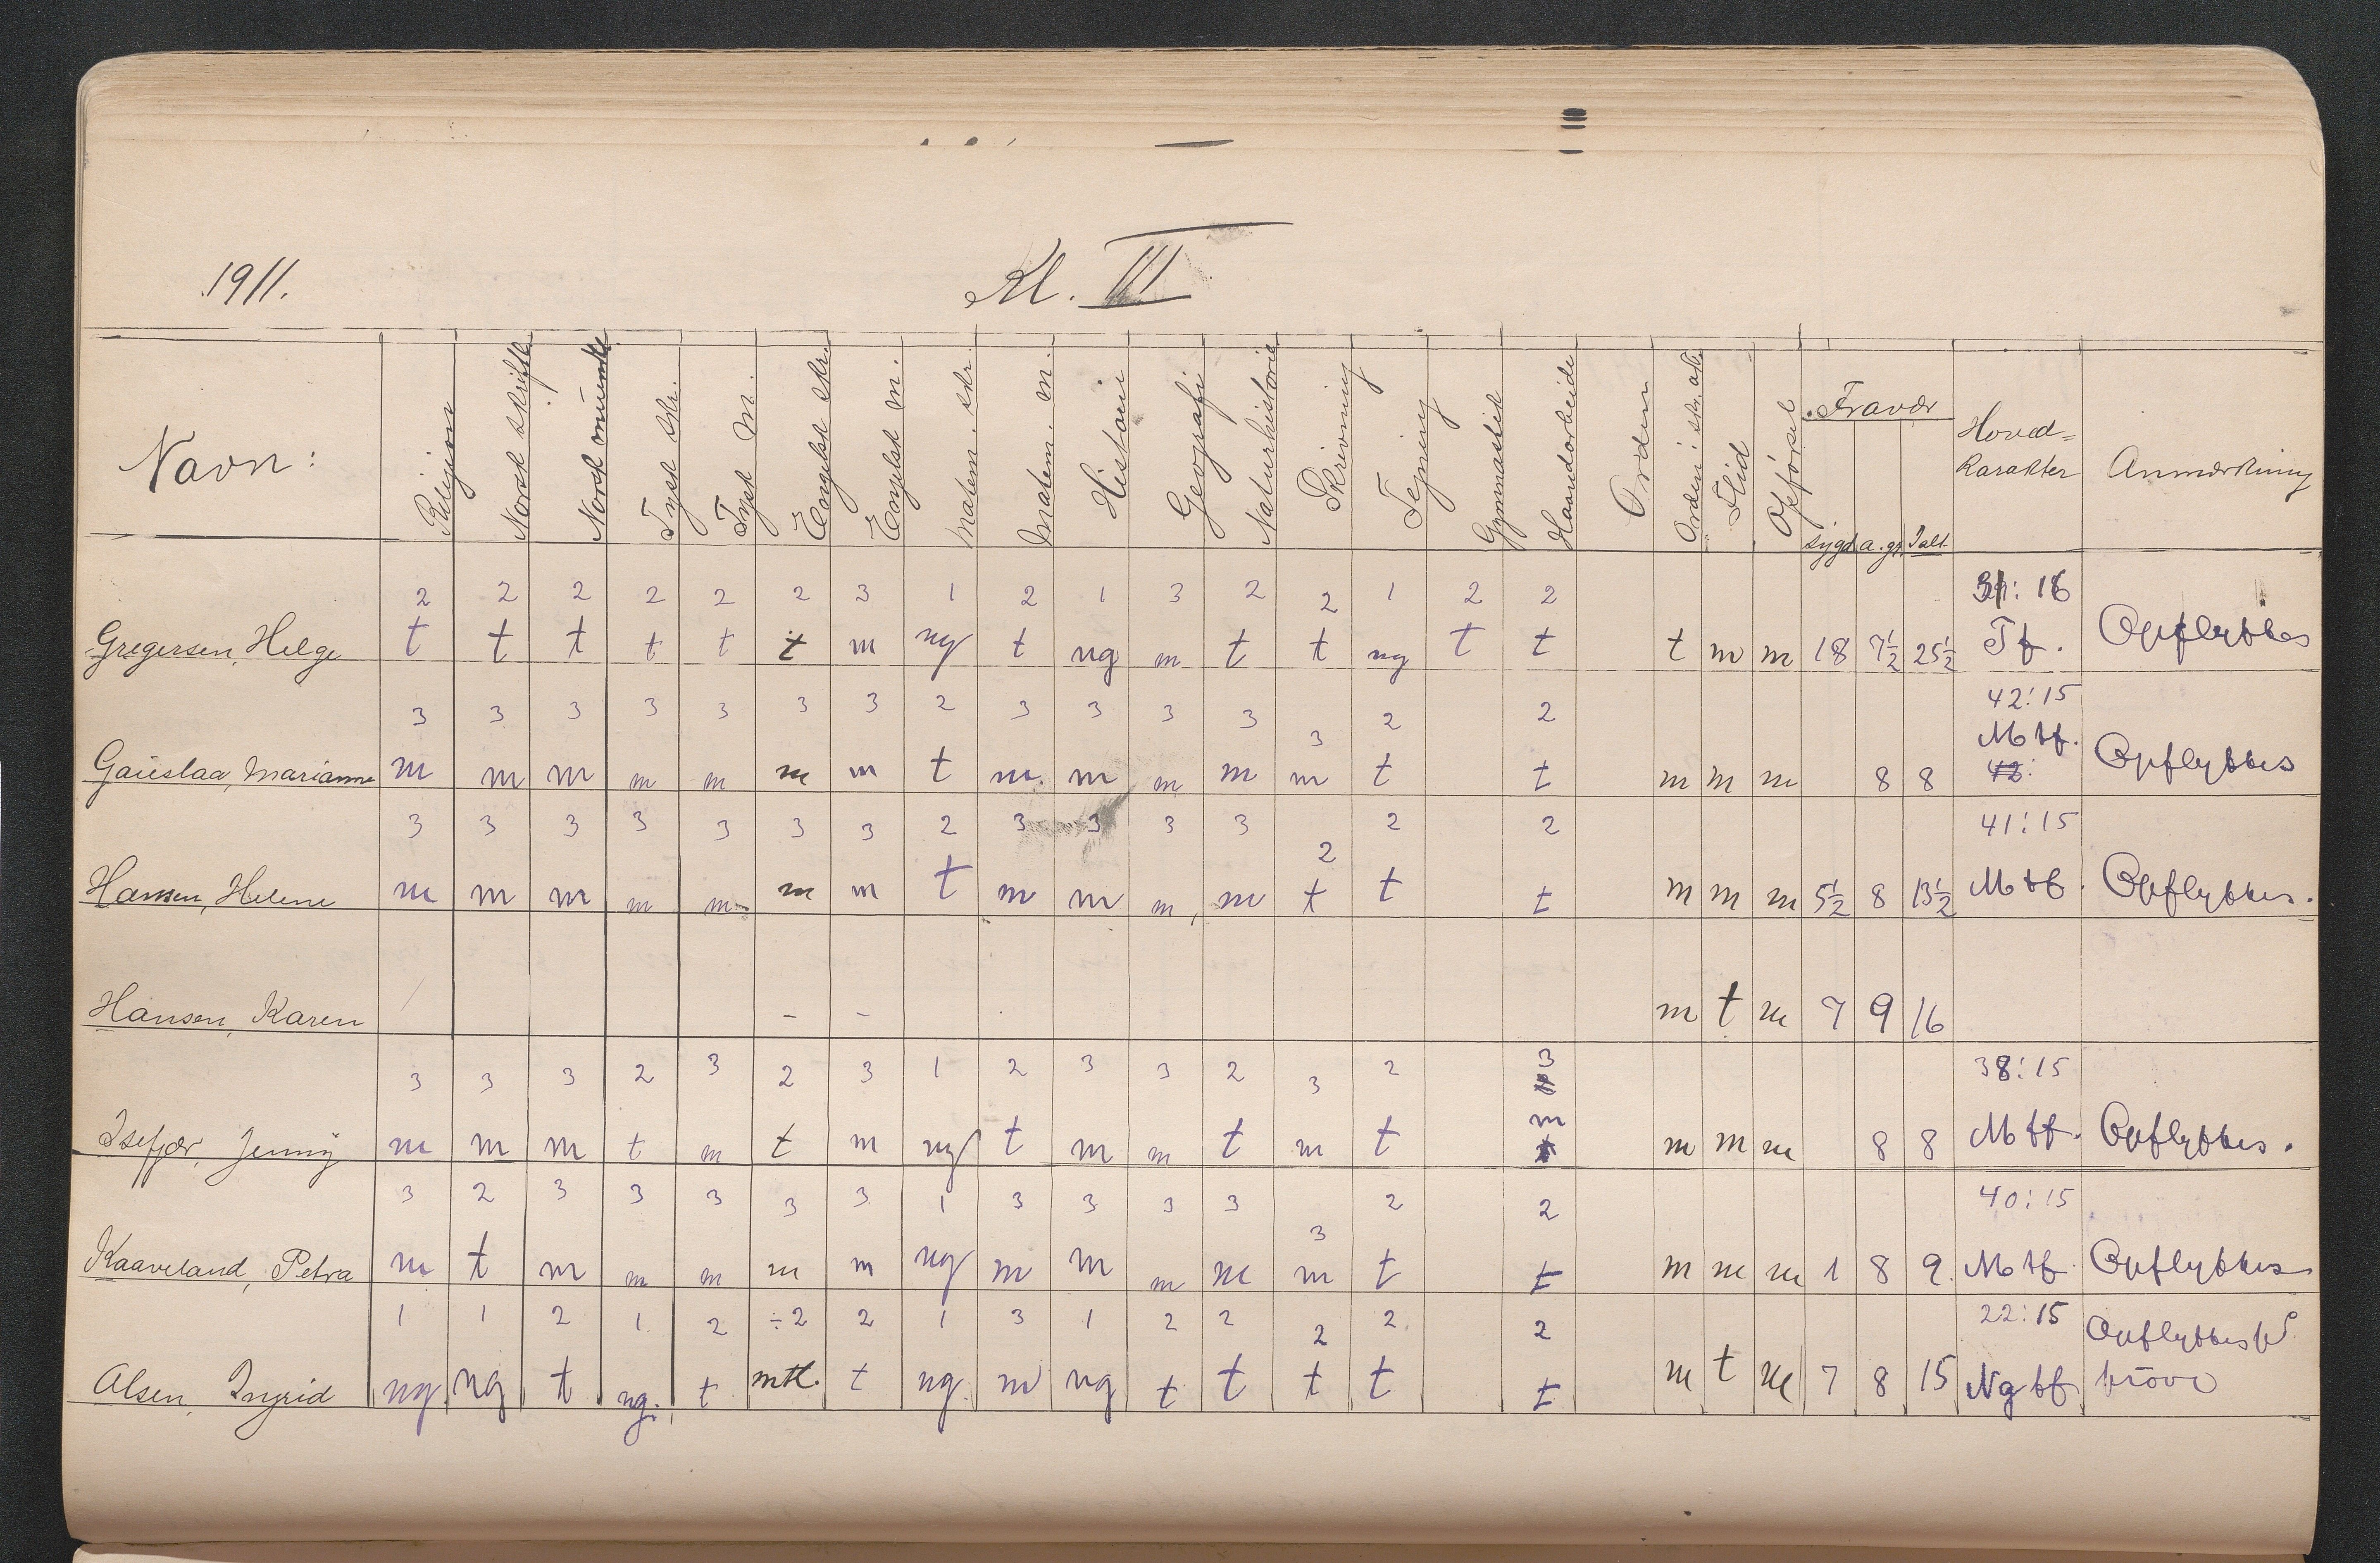 1911. Kl. III
Navn: Religion Norsk skriftl. Norsk mundtl. Tysk skr. Tysk M. Engelsk skr. Engelsk m. Matem. skr. Matem. m. Historie Geografi Naturhistorie Skrivning Tegning Gymnastik Haandarbeide Orden Orden i skr. arb. Flid Opførsel Fravær sygd. a. gr. Ialt. Hoved= Karakter Anmærkning
2 2 2 2 2 2 3 1 2 1 3 2 2 1 2 2 31: 16
Gregersen, Helge t t t t t t m ng t ng m t t ng t t t m m 18 7½ 25½ Tf. Opflyttes
3 3 3 3 3 3 3 2 3 3 3 3 3 2 2 42:15
Gauslaa, Marianne m m m m m m m t m. m m m m t t m m m 8 8 Mtf. 42: Opflyttes
3 3 3 3 3 3 3 2 3 3 3 3 2 2 2 41:15
Hansen, Helene m m m m m m m t m m m m t t t m m m 5½ 8 13½ Mtf. Opflyttes.
Hansen, Karen – – m t m 7 9 16
3 3 3 2 3 2 3 1 2 3 3 2 3 2 3 38:15
Isefjær, Jenny m m m t m t m ng t m m t m t m t m m m 8 8 Mtf. Opflyttes.
3 2 3 3 3 3 3 1 3 3 3 3 3 2 2 40:15
Kaaveland, Petra m t m m m m m ng m m m m m t t m m m 1 8 9. Mtf. Opflyttes
1 1 2 1 2 ÷2 2 1 3 1 2 2 2 2 2 22:15 Opflyttes på
Olsen, Ingrid ng. ng t ng. t mtl. t ng. m ng t t t t t m t m 7 8 15 Ngtf prøve